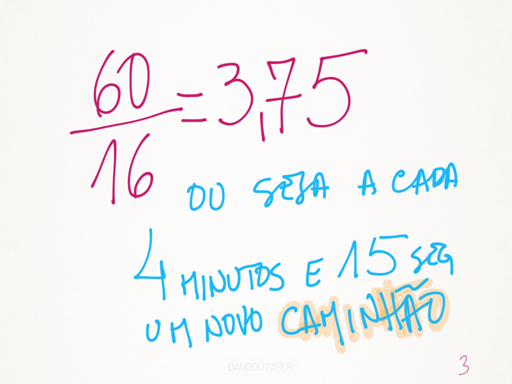 60
16
=3,75
OU SEJA A CADA
4 MINUTOS E 15 SEG
UM NOVO CAMINHÃO
3